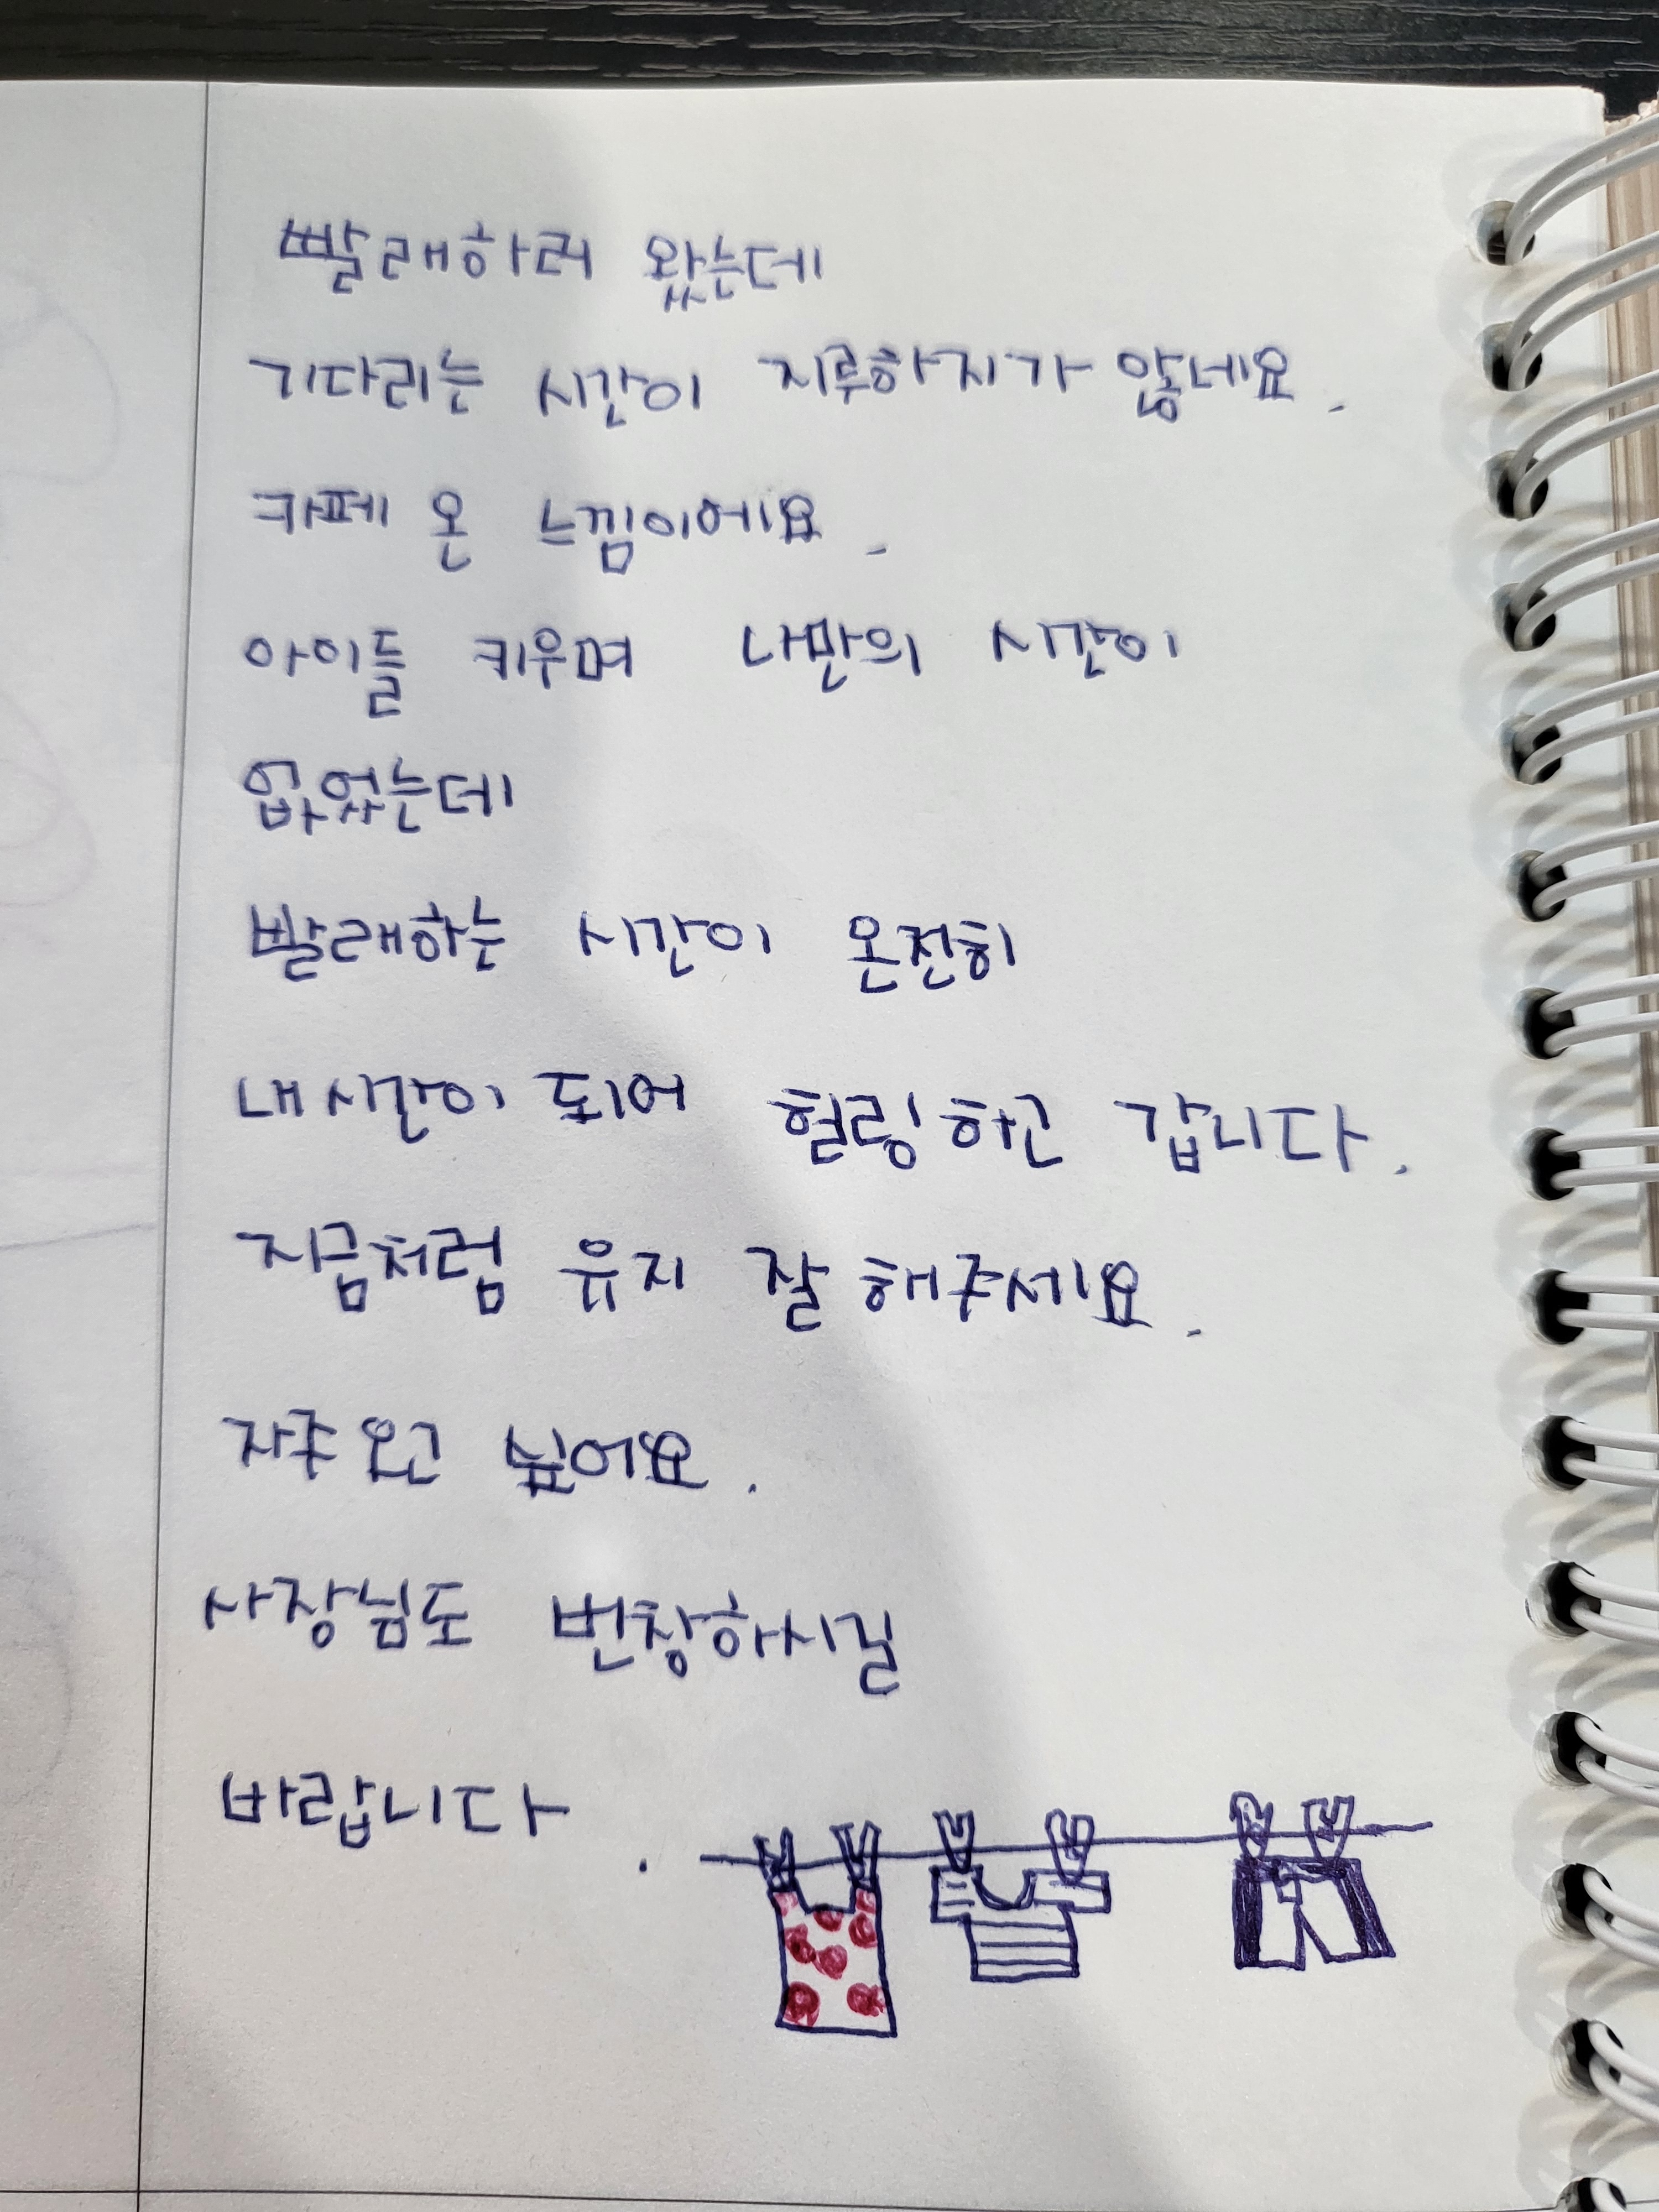 빨래하러 왔는데
기다리는 시간이 지루하지가 않네요.
카페 온 느낌이에요.
아이들 키우며 나만의 시간이
없었는데
빨래하는 시간이 온전히
내시간이 되어 힐링하고 갑니다.
지금처럼 유지 잘 해주세요.
자주 오고 싶어요.
사장님도 번창하시길
바랍니다.